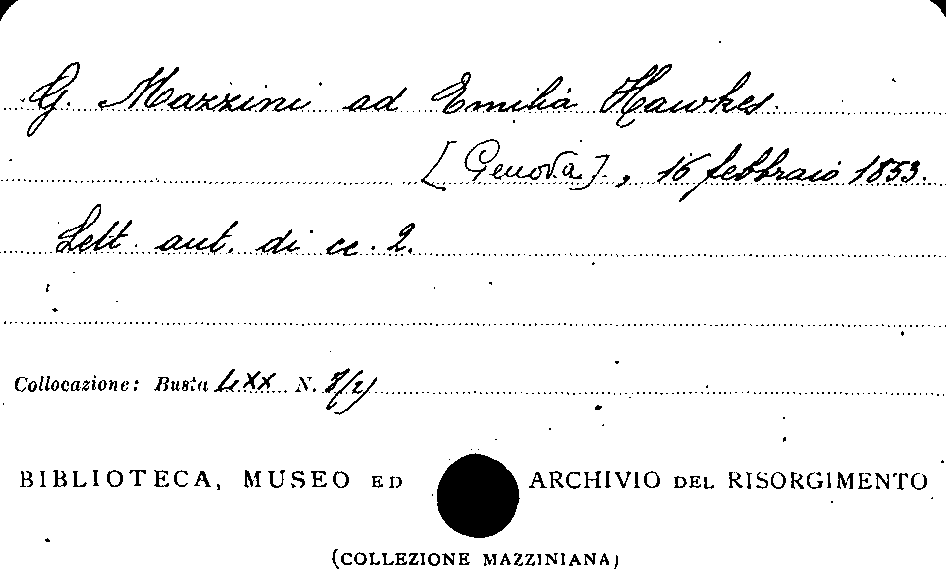 G. Mazzini ad Emilia Hawkes.
[Genova], 16 febbraio 1853.
Lett. aut. di cc. 2.
Collocazione: Busta LXX N. 8/2)
BIBLIOTECA, MUSEO ED ARCHIVIO DEL RISORGIMENTO
(COLLEZIONE MAZZINIANA)